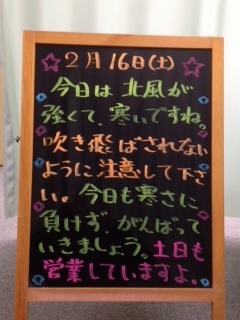 2月16日(土)
今日は 北風が
強くて、寒いですね。
吹き飛ばされない
ように注意して下さ
い。今日も寒さに
負けず、がんばって
いきましょう。土日も
営業していますよ。